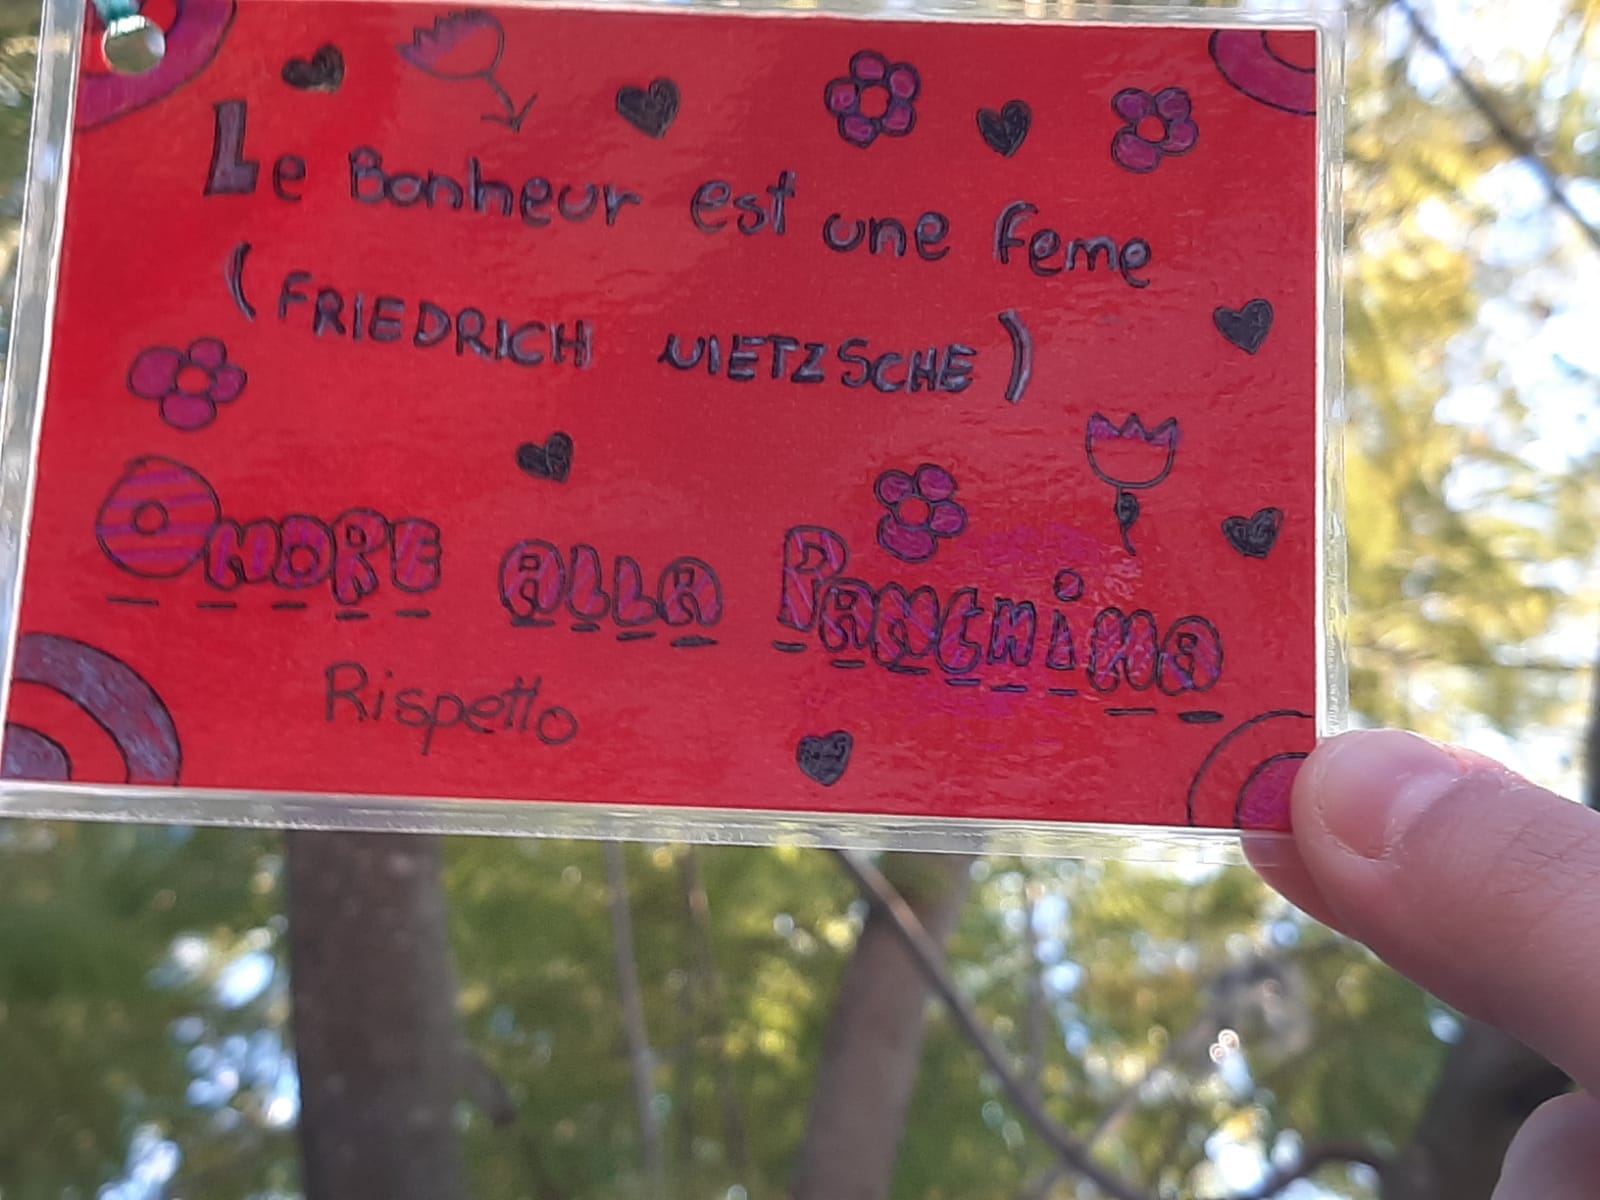 Le Bonheur est une feme
(FRIEDRICH NIETZSCHE)
ONORE ALLA PANCHINA
Rispetto